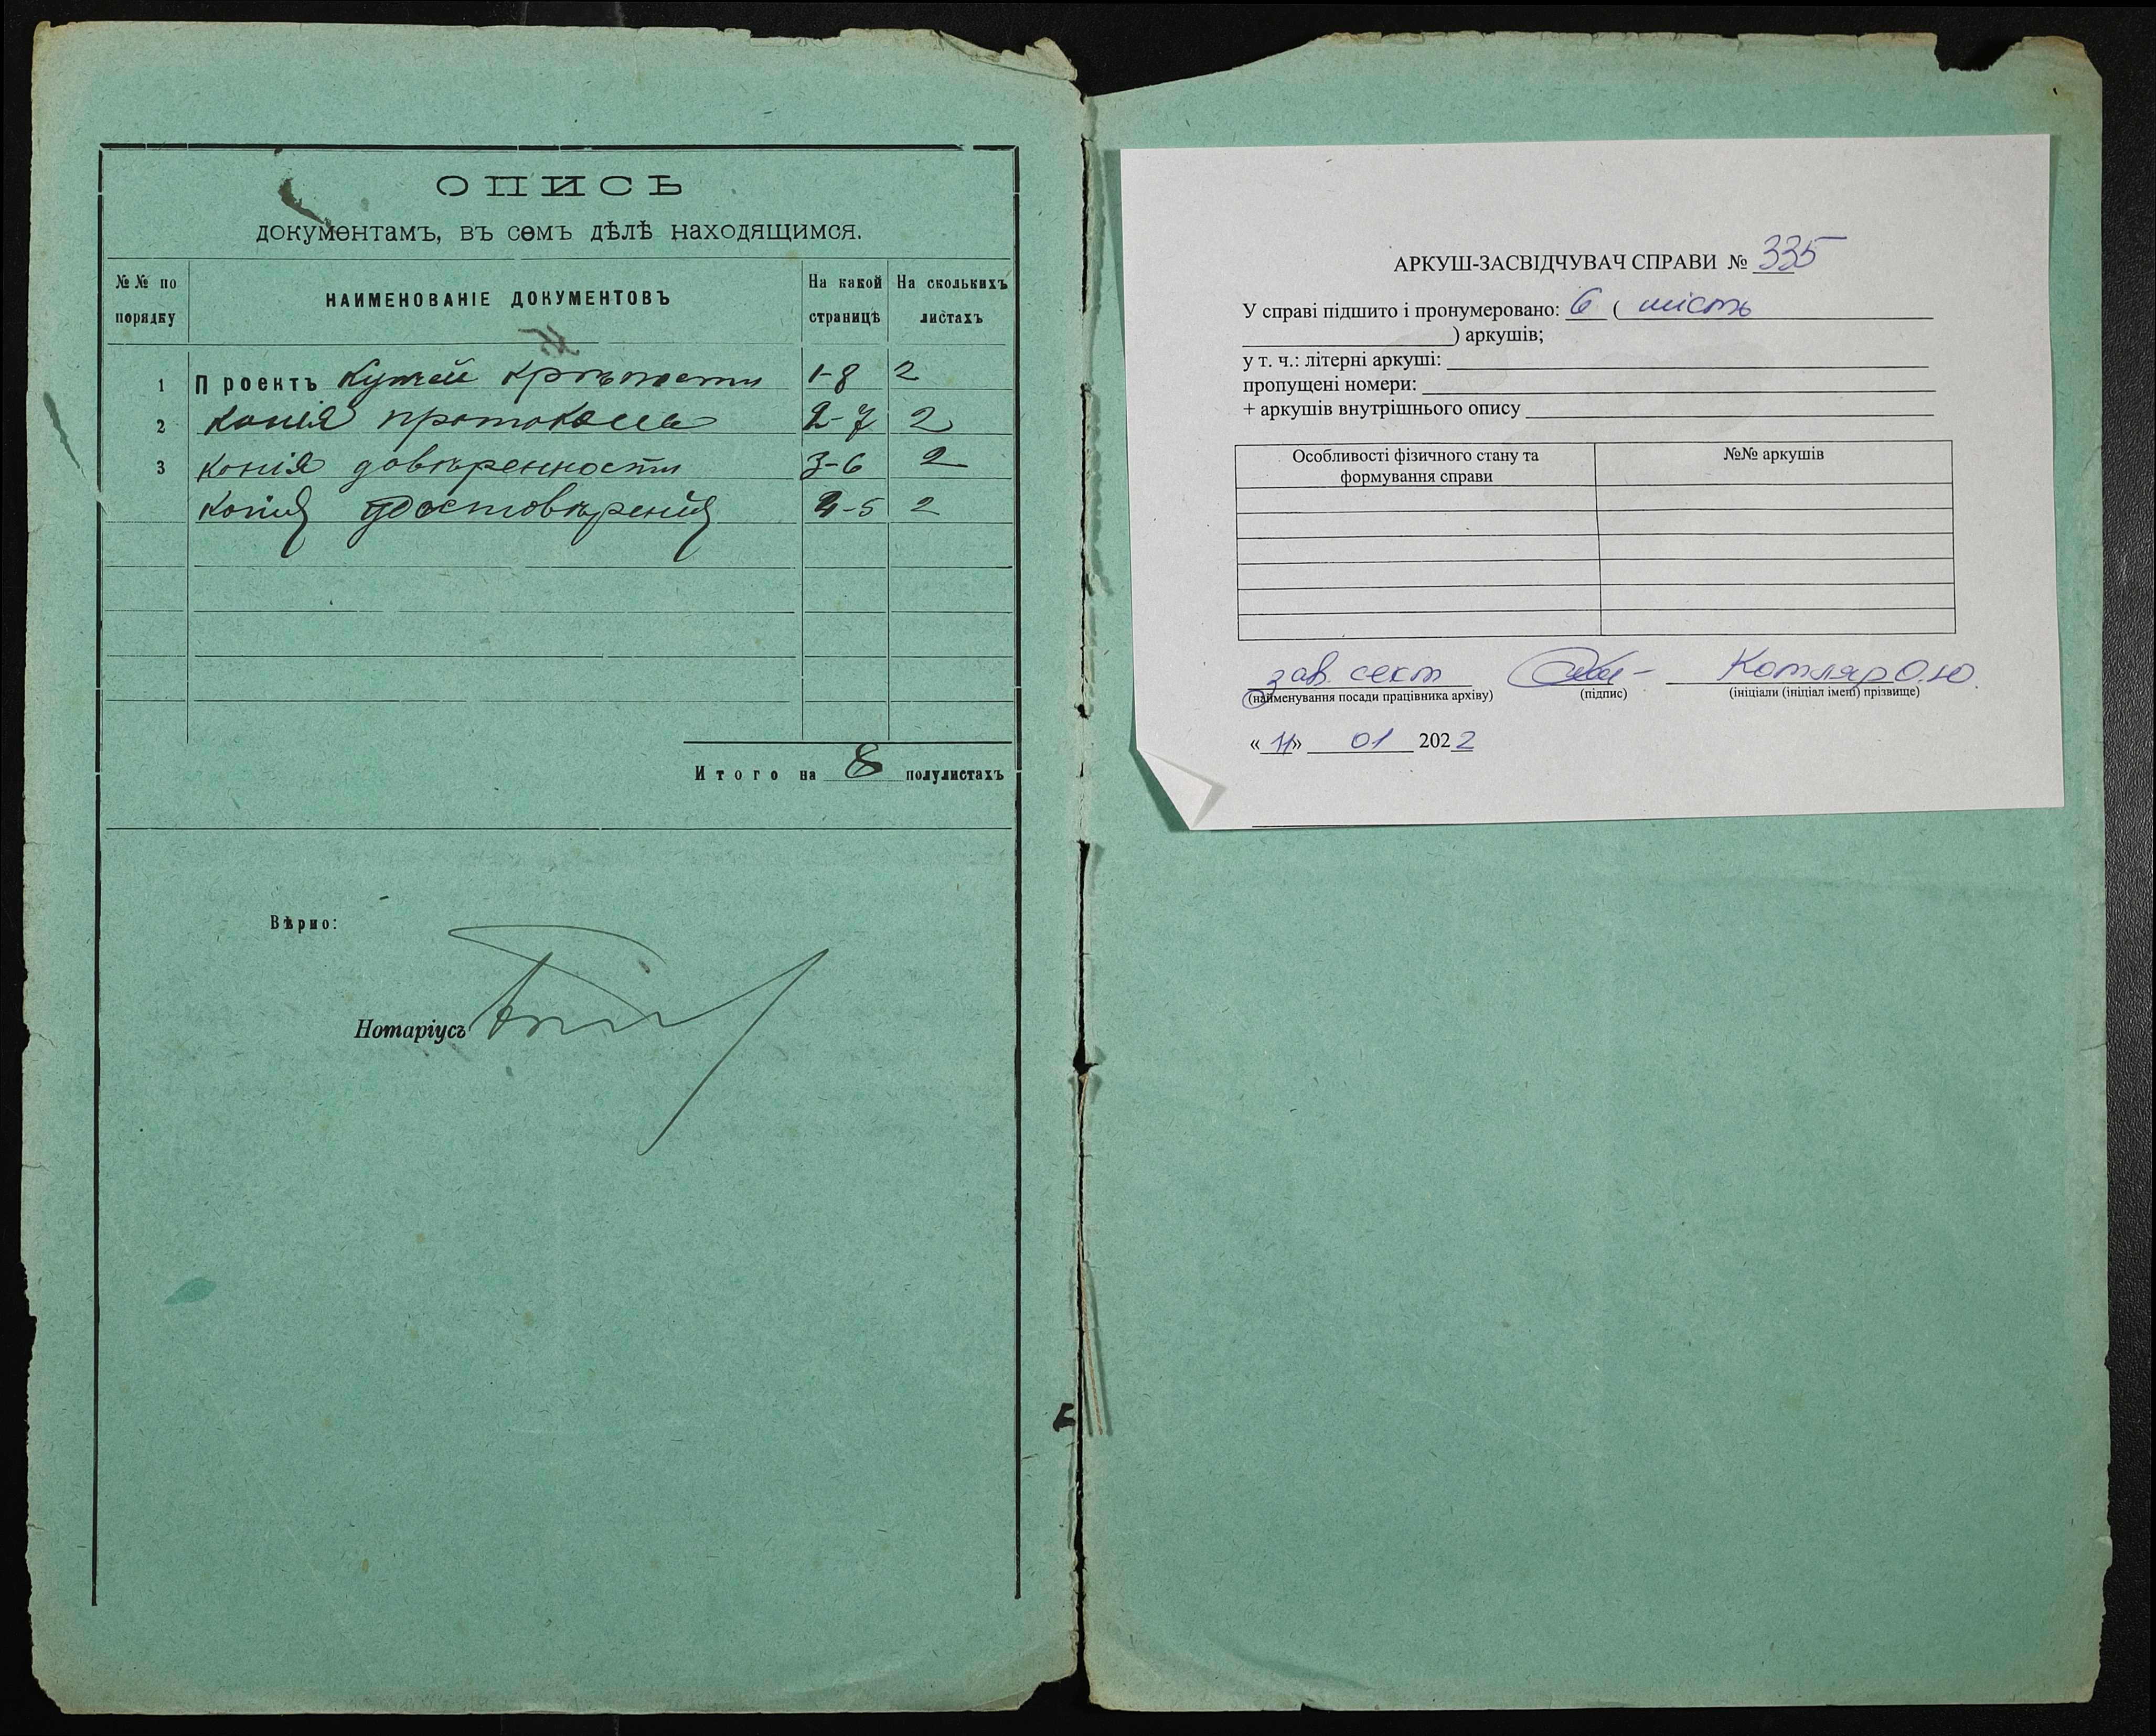 ОПИСЬ
документамъ, въ семъ дѣлѣ находящимся.
№№ по порядку
НАИМЕНОВАНІЕ ДОКУМЕНТОВЪ
На какой страницѣ
На сколькихъ листахъ
1 Проектъ купчей крѣпости 1-8 2
2 копія протокола 2-7 2
3 копія довѣренности 3-6 2
копія удостовѣренія 4-5 2
Итого на 8 полулистахъ
Вѣрно:
Нотаріусъ
АРКУШ-ЗАСВІДЧУВАЧ СПРАВИ № 335
У справі підшито і пронумеровано: 6 ( шість
) аркушів;
у т. ч.: літерні аркуші:
пропущені номери:
+ аркушів внутрішнього опису
Особливості фізичного стану та формування справи
№№ аркушів
зав. сект Котляр О.Ю.
(найменування посади працівника архіву) (підпис) (ініціали (ініціал імені) прізвище)
« 11» 01 2022